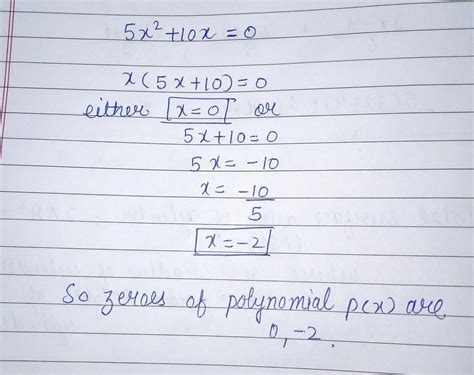 5x² + 10x = 0
x(5x+10) = 0
either x=0 or
5x+10=0
5x = -10
x = -10/5
x = -2
So zeroes of polynomial p(x) are
0, -2.